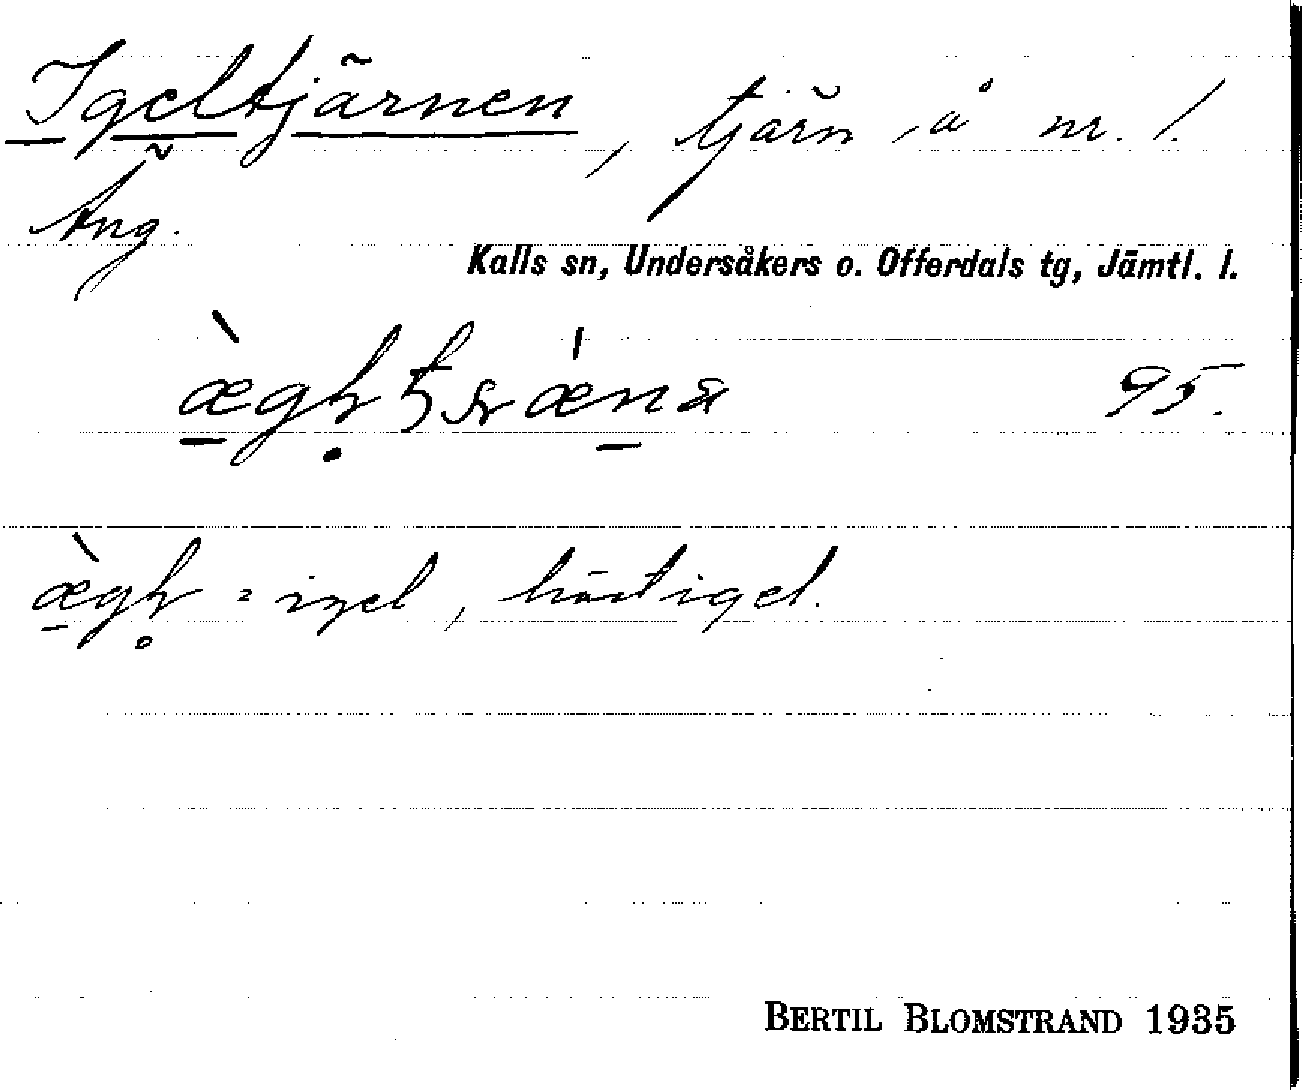 Igeltjärnen, tjärn å nr. 1.
Äng.
Kalls sn, Undersåkers o. Offerdals tg, Jämtl. l.
95.
= igel, hästigel.
BERTIL BLOMSTRAND 1935